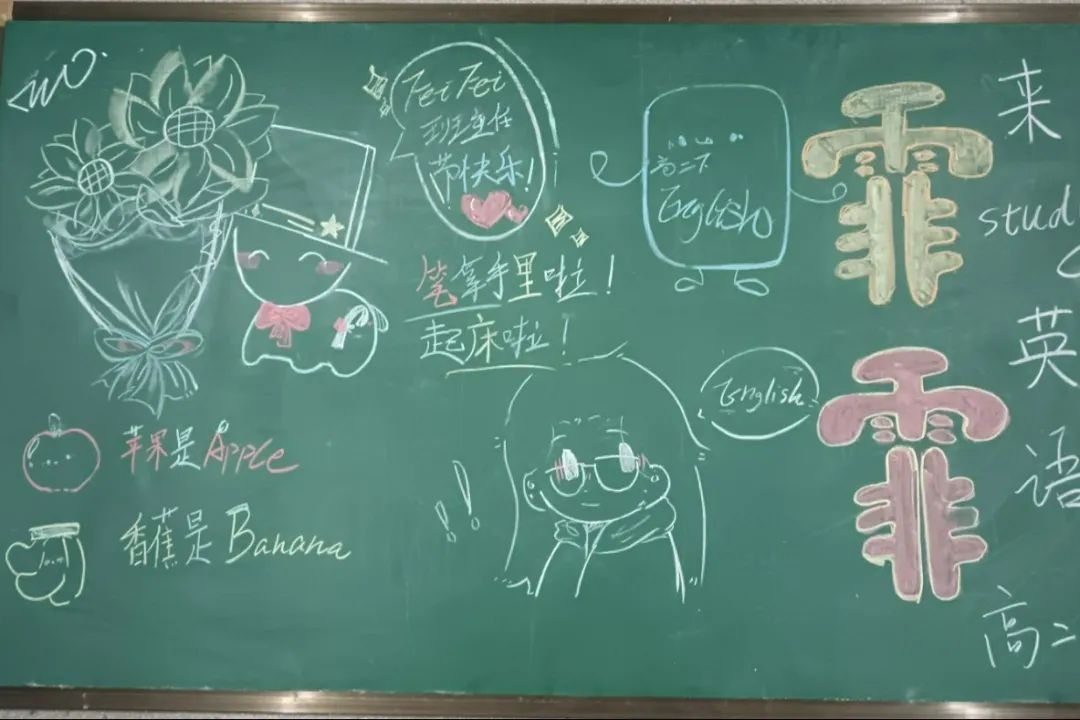 Fei Fei
班主任
节快乐!
笔拿手里啦!
起床啦!
苹果是Apple
香蕉是Banana
高二下
English
English
霏
霏
来
stud
英
语
高二